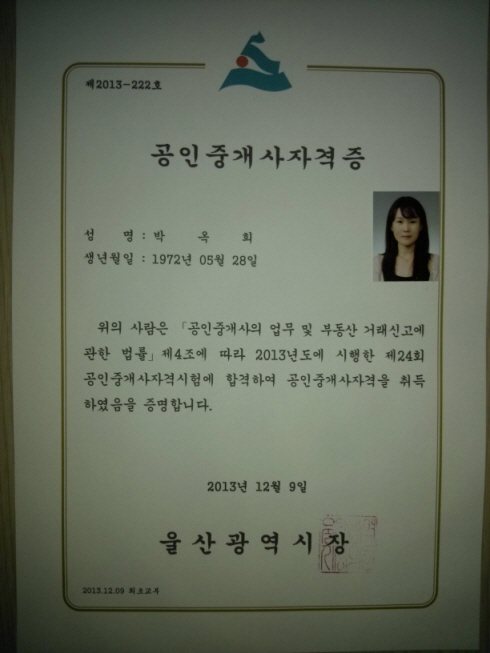 제2013-222호
공인중개사자격증
성 명 : 박 옥 희
생년월일 : 1972년 05월 28일
위의 사람은 「공인중개사의 업무 및 부동산 거래신고에
관한 법률」제4조에 따라 2013년도에 시행한 제24회
공인중개사자격시험에 합격하여 공인중개사자격을 취득
하였음을 증명합니다.
2013년 12월 9일
울산광역시장
2013.12.09 최초교부